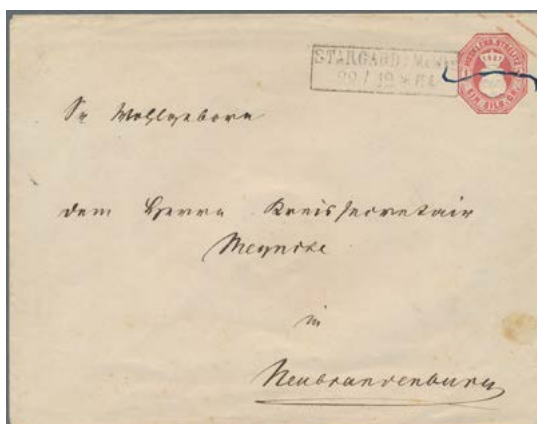 STARGARD
MECKLENB. STRELITZ
EIN SILB. GR.
Sr Wohlgeboren
dem Herrn Kreissecretair
in
Neubrandenburg